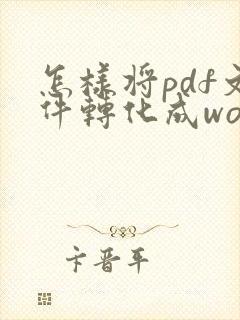 怎樣將pdf文
件轉化成wo
卞晋平